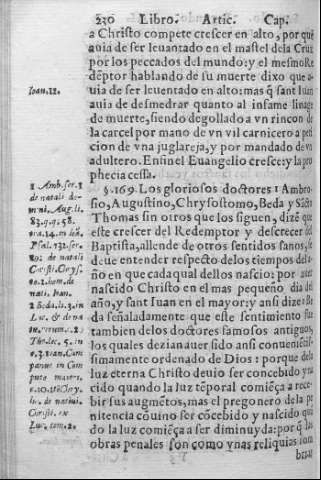 230 Libro. Artic. Cap.
a Christo compete crescer en alto, por quē
auia de ser leuantado en el mastel dela Cruz
por los peccados del mundo: y el mesmo Re
dēptor hablando de su muerte dixo que a-
Ioan. 12. uia de ser leuentado en alto: mas q̃ sant Iuan
auia de desmedrar quanto al infame linage
de muerte, siendo degollado a vn rincon de
la carcel por mano de vn vil carnicero a peti
cion de vna juglareja, y por mandado de vn
adultero. En fin el Euangelio cresce: y la pro
phecia cessa.
1 Amb. ser. 1 §. 169. Los gloriosos doctores 1 Ambro-
de natali do- sio, Augustino, Chrysostomo, Beda y Sācto
mini. Aug. li. Thomas sin otros que los siguen, dizē que
83. q. q. 58. este crescer del Redemptor y descrecer del
Baptista, allende de otros sentidos sanos, se
Psal. 132. ser.
de natali deue entender respecto de los tiempos del a-
Christi. Chrys. ño en que cada qual dellos nascio: por auer
nascido Christo en el mas pequeño dia del
nati. Ioan. año, y sant Iuan en el mayor: y ansi dize 2 Be
2 Beda. li. 2. in da señaladamente que este sentimiento fue
Luc. & de na tambien de los doctores famosos antiguos,
los quales dezian auer sido ansi conuenietis-
Tho. lec. 5. in simamente ordenado de Dios: porque de la
luz eterna Christo deuio ser concebido y na
cido quando la luz tēporal comiēça a rece-
bir sus augmētos, mas el pregonero de la pe
li. de natiui. nitencia cōuino ser cōcebido y nascido quā
Christi. do la luz comiēça a ser diminuyda: por q̃ las
Luc. tom. 2. obras penales son como vnas reliquias